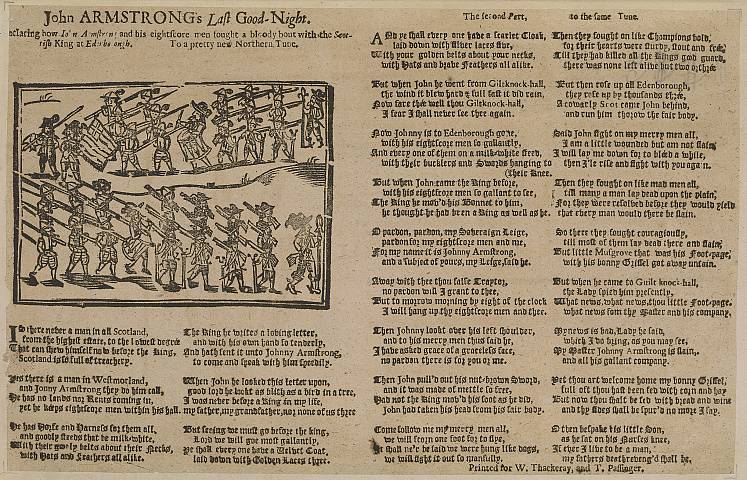 John ARMSTRONG's Last Good-Night.
declaring how John Armstrong and his eightscore men fought a bloody bout with the Scot-
tish King at Edenborough.
To a pretty new Northern Tune.
Is there never a man in all Scotland,
from the highest estate, to the lowest degree
That can shew himself now before the King,
Scotland is so full of treachery.
Yes there is a man in Westmorland,
and Jonny Armstrong they do him call,
He has no lands nor Rents coming in,
yet he keeps eightscore men within his hall.
He has Horse and Harness for them all,
and goodly steeds that be milk-white,
With their goodly belts about their Necks,
with Hats and Feathers all alike.
The King he writes a loving letter,
and with his own hand so tenderly,
And hath sent it unto Johnny Armstrong,
to come and speak with him speedily.
When John he looked this letter upon,
good lord he lookt as blith as a bird in a tree,
I was never before a King in my life,
my father, my grandfather, nor none of us three
But seeing we must go before the king,
Lord we will goe most gallantly,
Ye shall every one have a Velvet Coat,
laid down with Golden Laces three.
The second Part,
to the same Tune.
And ye shall every one have a scarlet Cloak,
laid down with silver laces five,
With your golden belts about your necks,
with Hats and brave Feathers all alike.
But when John he went from Gilsknock-hall,
the wind it blew hard & full fast it did rain,
Now fare thee well thou Gilsknock-hall,
I fear I shall never see thee again.
Now Johnny is to Edenborough gone,
with his eightscore men so gallantly,
And every one of them on a milk-white steed,
with their bucklers and Swords hanging to
(their Knee.
But when John came the King before,
with his eightscore men so gallant to see,
The King he mov'd his Bonnet to him,
he thought he had been a King as well as he.
O pardon, pardon, my Soveraign Leige,
pardon for my eightscore men and me,
For my name it is Johnny Armstrong,
and a subject of yours, my Leige, said he.
Away with thee thou false Traytor,
no pardon will I grant to thee,
But to morrow morning by eight of the clock
I will hang up thy eightscore men and thee.
Then Johnny lookt over his left shoulder,
and to his merry men thus said he,
I have asked grace of a graceless face,
no pardon there is for you or me.
Then John pull'd out his nut-brown Sword,
and it was made of mettle so free,
Had not the King mov'd his foot as he did,
John had taken his head from his fair body.
Come follow me my merry men all,
we will scorn one foot for to flye,
It shall ne'r be said we were hung like dogs,
we will fight it out so manfully.
Then they fought on like Champions bold,
for their hearts were sturdy, stout and free,
Till they had killed all the Kings good guard,
there was none left alive but two or three
But then rose up all Edenborough,
they rise up by thousands three,
A cowardly Scot came John behind,
and run him thorow the fair body.
Said John fight on my merry men all,
I am a little wounded but am not slain,
I will lay me down for to bleed a while,
then I'le rise and fight with you again.
Then they fought on like mad men all,
till many a man lay dead upon the plain,
For they were resolved before they would yield
that every man would there be slain.
So there they fought couragiously,
till most of them lay dead there and slain,
But little Musgrove that was his Foot-page,
with his bonny Grissel got away untain.
But when he came to Gilsknock-hall,
the Lady spied him presently,
What news, what news, thou little Foot-page,
what news from thy Master and his company.
My news is bad, Lady he said,
which I do bring, as you may see,
My Master Johnny Armstrong is slain,
and all his gallant company.
Yet thou art welcome home my bonny Grissel,
full oft thou hast been fed with corn and hay
But now thou shalt be fed with bread and wine
and thy sides shall be spur'd no more I say.
O then bespake his little Son,
as he sat on his Nurses knee,
If ever I live to be a man,
my fathers death reveng'd shall be.
Printed for W. Thackeray, and T. Passinger.